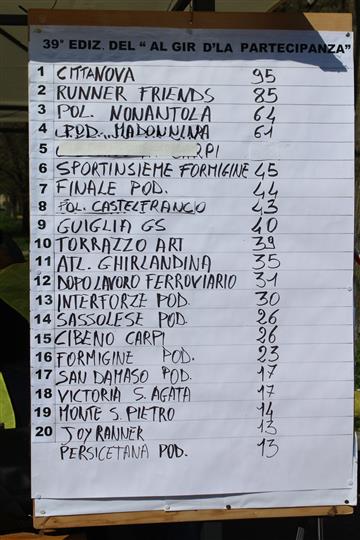 39° EDIZ. DEL “ AL GIR D'LA PARTECIPANZA”
1 CITTANOVA 95
2 RUNNER FRIENDS 85
3 POL. NONANTOLA 64
4 POD. MADONNINA 61
5 CARPI
6 SPORTINSIEME FORMIGINE 45
7 FINALE POD. 44
8 POL. CASTELFRANCO 43
9 GUIGLIA GS 40
10 TORRAZZO ART 39
11 ATL. GHIRLANDINA 35
12 DOPO LAVORO FERROVIARIO 31
13 INTERFORZE POD. 30
14 SASSOLESE POD. 26
15 CIBENO CARPI 26
16 FORMIGINE POD. 23
17 SAN DAMASO POD. 17
18 VICTORIA S. AGATA 17
19 MONTE S. PIETRO 14
20 JOY RANNER 13
PERSICETANA POD. 13